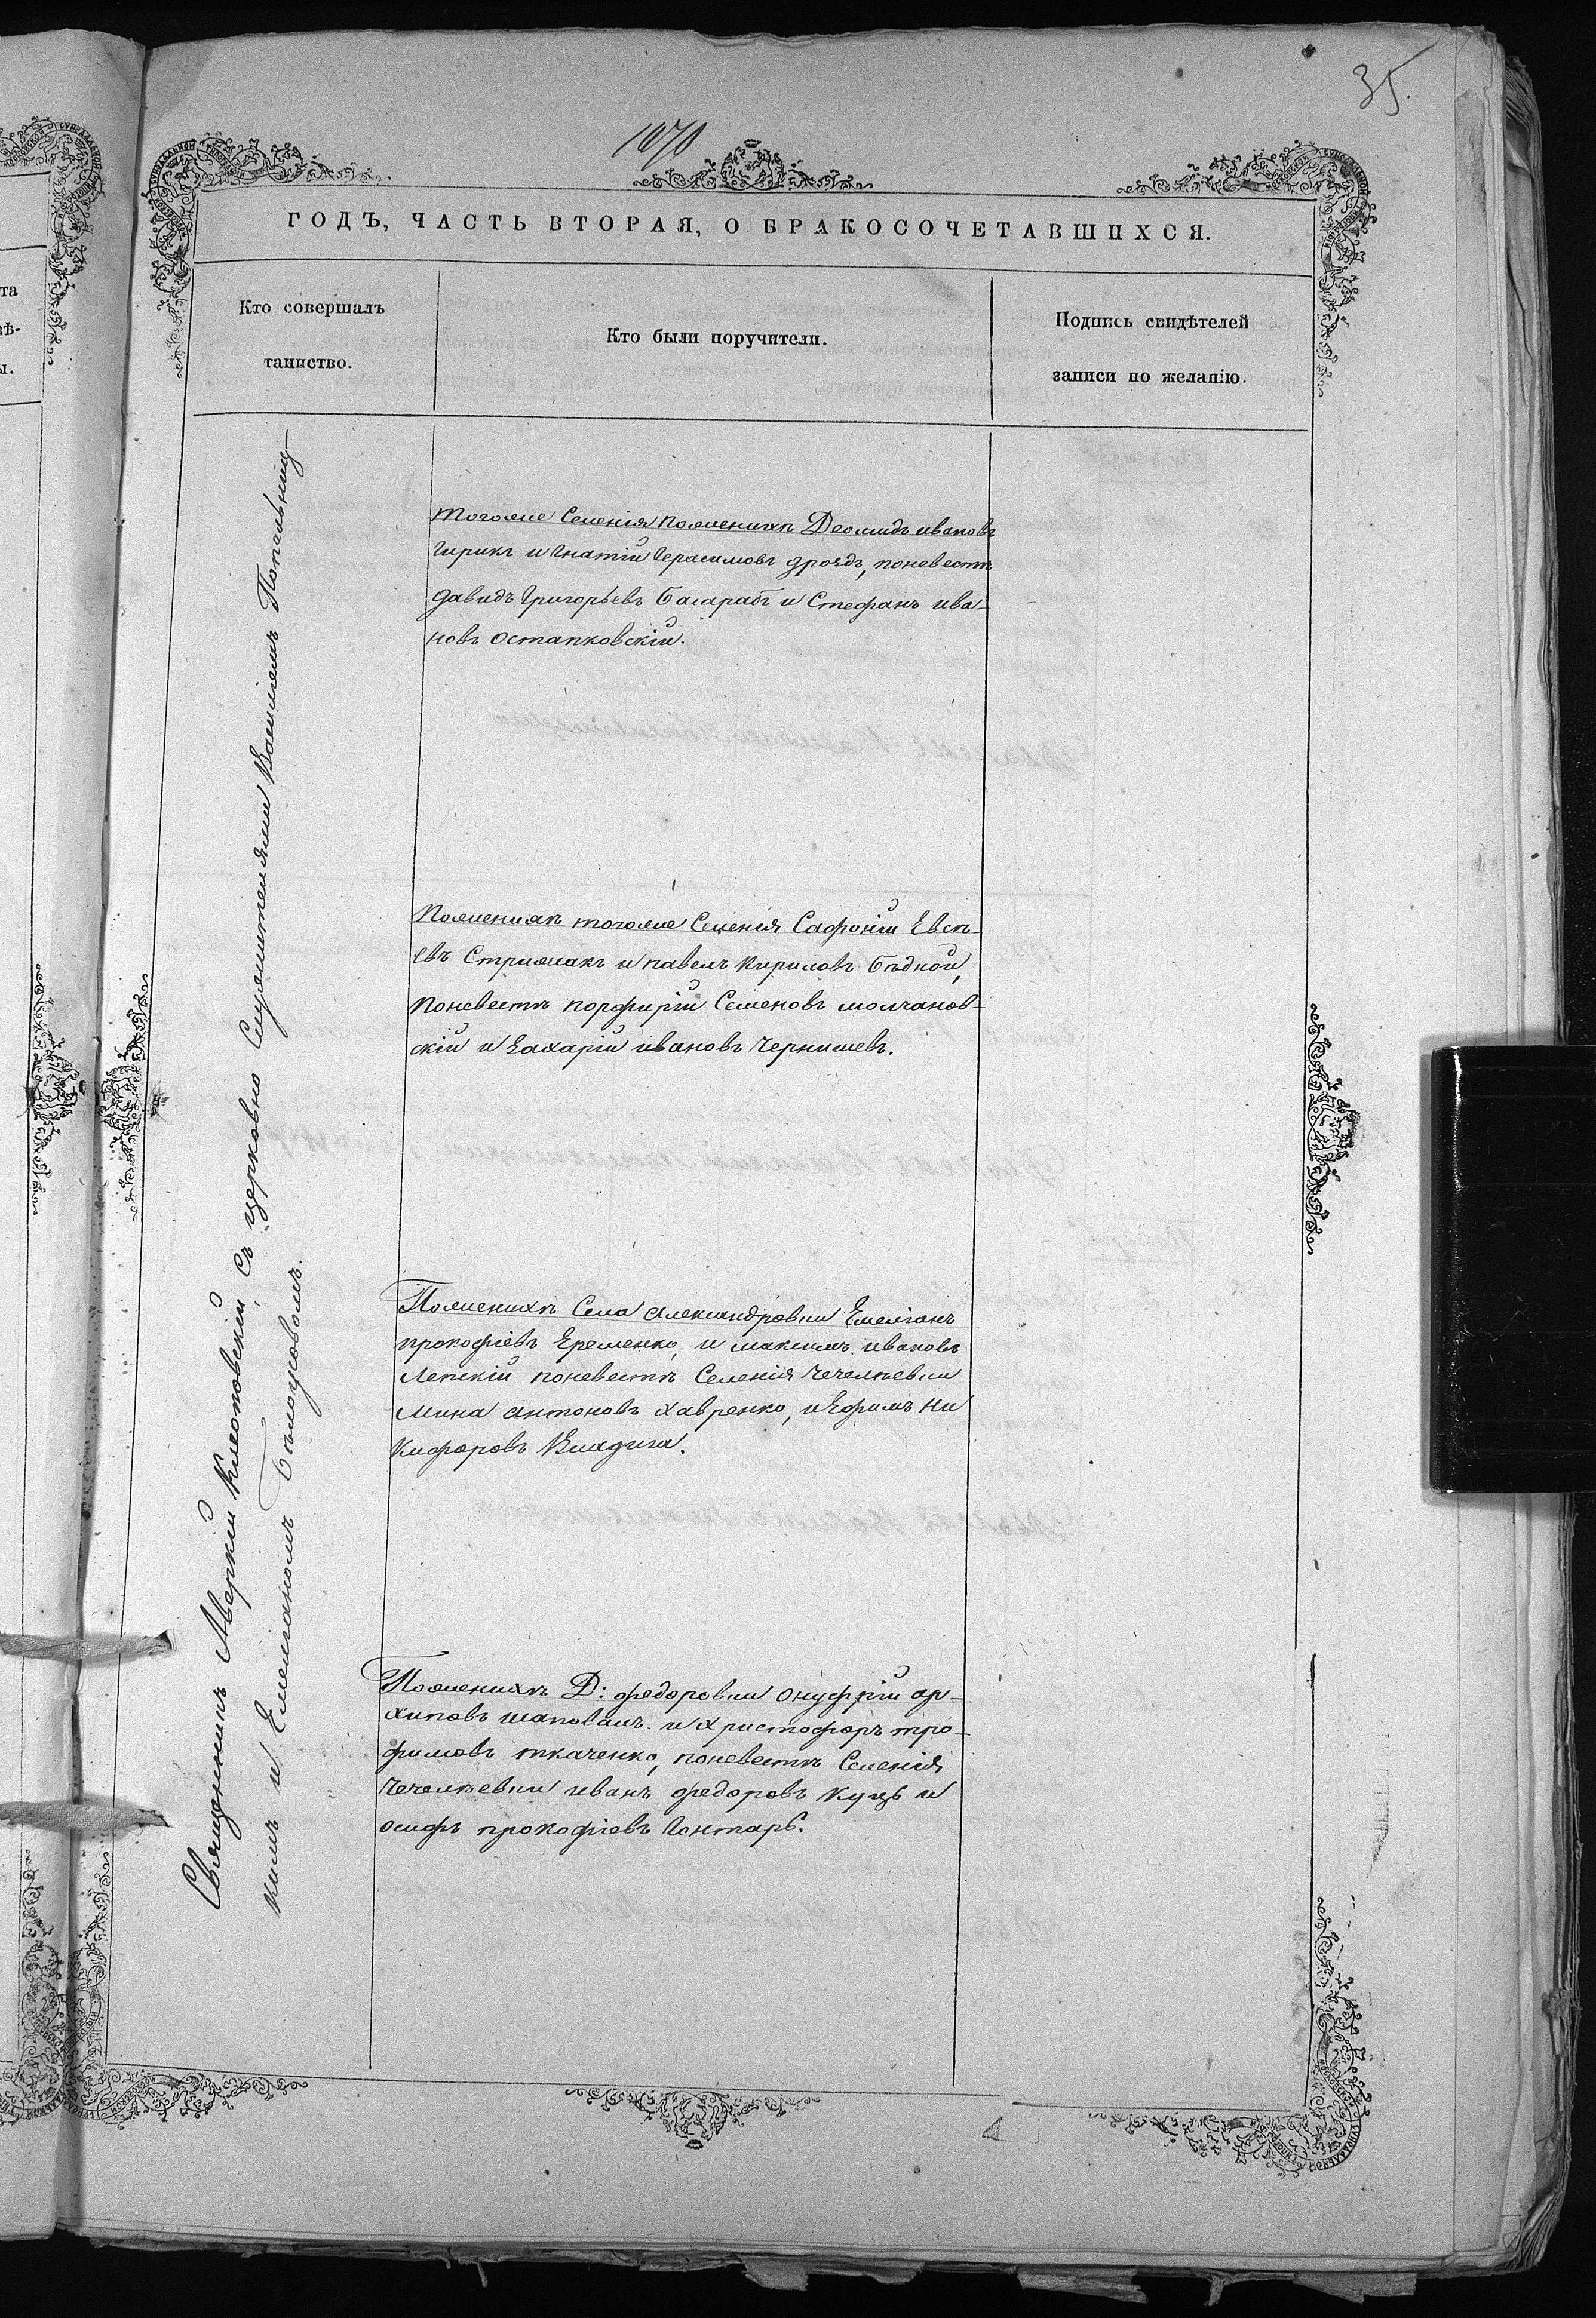 35.
1870
ГОДЪ, ЧАСТЬ ВТОРАЯ, О БРАКОСОЧЕТАВШИХСЯ.
Кто совершалъ
таинство.
Кто были поручители.
Подпись свидѣтелей
записи по желанію.
Священникъ Аверкій Клеотовскій, съ церковно Служителями Василіемъ Попельниц-
кимъ и Емеліаномъ Бѣлоусовомъ.
тогоже Селенія поженихѣ Деомидъ ивановъ
Чирикъ и Игнатій Герасимовъ дроздъ, поневестѣ
давидъ Григорьевъ Басарабъ и Стефанъ ива-
новъ Остапковскій.
Поженихѣ тогоже Селенія Сафоній Евсѣ-
евъ Стрижакъ и павелъ кириловъ бѣдной,
поневестѣ порфирій Семеновъ молчанов-
скій и Захарій ивановъ Чернышевъ.
Поженихѣ Села александровки Емеліанъ
прокофіевъ Еременко, и максимъ ивановъ
Лепскій поневестѣ Селенія Чечеліевки
Мина антоновъ Хавренко, и Ефимъ Ни
кифоровъ Кладига.
Поженихѣ Д: федоровки онуфрій ар-
хиповъ шаповалъ. и христофоръ тро-
фимовъ ткаченко, поневестѣ Селенія
Чечеліевки иванъ федоровъ Куцъ и
осифъ прокофіевъ Гонтарь.